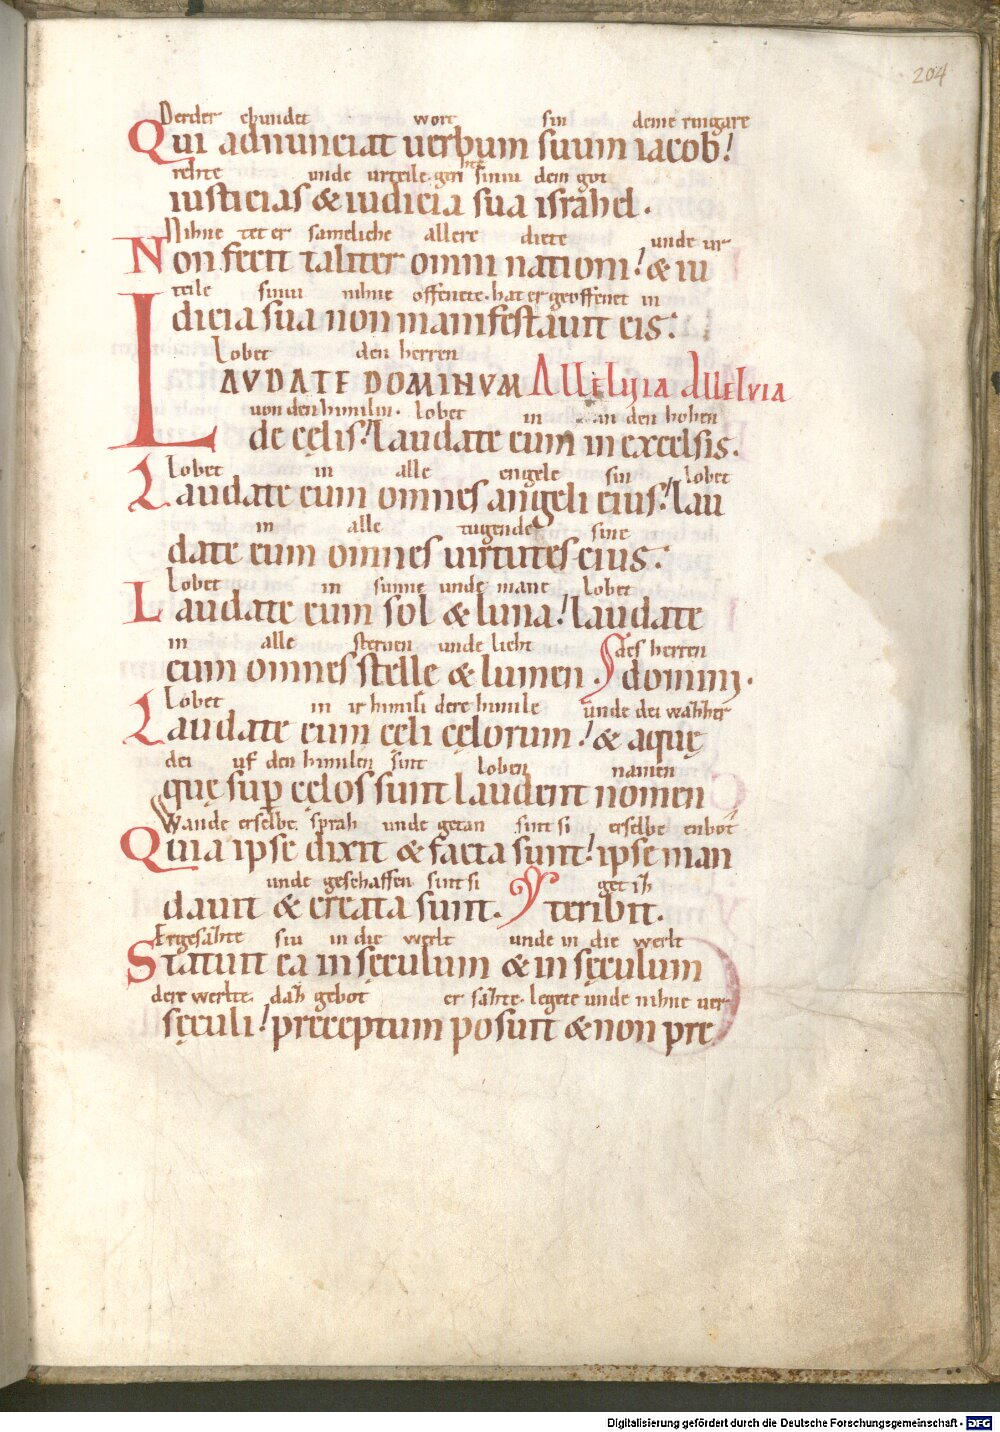 204
Derder chundet wort sin deme ringare
Qui adnunciat uerbum suum iacob!
rehte unde urteile siniu dem got
iusticias & iudicia sua israhel.
Nihne tet er sameliche allere diete unde ur
Non fecit taliter omni nationi! & iu
teile siniu nihne offenete. hat er geoffenet in
dicia sua non manifestauit eis.
Lobet den herren
LAVDATE DOMINVM AllEluia allElvia
uon den himilin. lobet in an den hohen
de cęlis! laudate eum in excelsis.
Lobet in alle engele sin lobet
Laudate eum omnes angeli eius! lau
in alle tugende sine
date eum omnes uirtutes eius.
Lobet in sunne unde mane lobet
Laudate eum sol & luna! laudate
in alle sternen unde lieht des herren
eum omnes stelle & lumen. domini.
Lobet in ir himili dere himile unde dei wahher
Laudate eum cęli cęlorum! & aquę
dei uf den himilen sint loben namen
quę sup cęlos sunt laudent nomen
Wande erselbe sprah unde getan sint si erselbe enbot
Quia ipse dixit & facta sunt! ipse man
unde geschaffen sint si get ih
dauit & creata sunt. teribit.
Ergesahte siu in die werlt unde in die werlt
Statuit ea in sęculum & in sęculum
dere werlte. dah gebot er sahte. legete unde nihne uer
sęculi! preceptum posuit & non pre
Digitalisierung gefördert durch die Deutsche Forschungsgemeinschaft - DFG